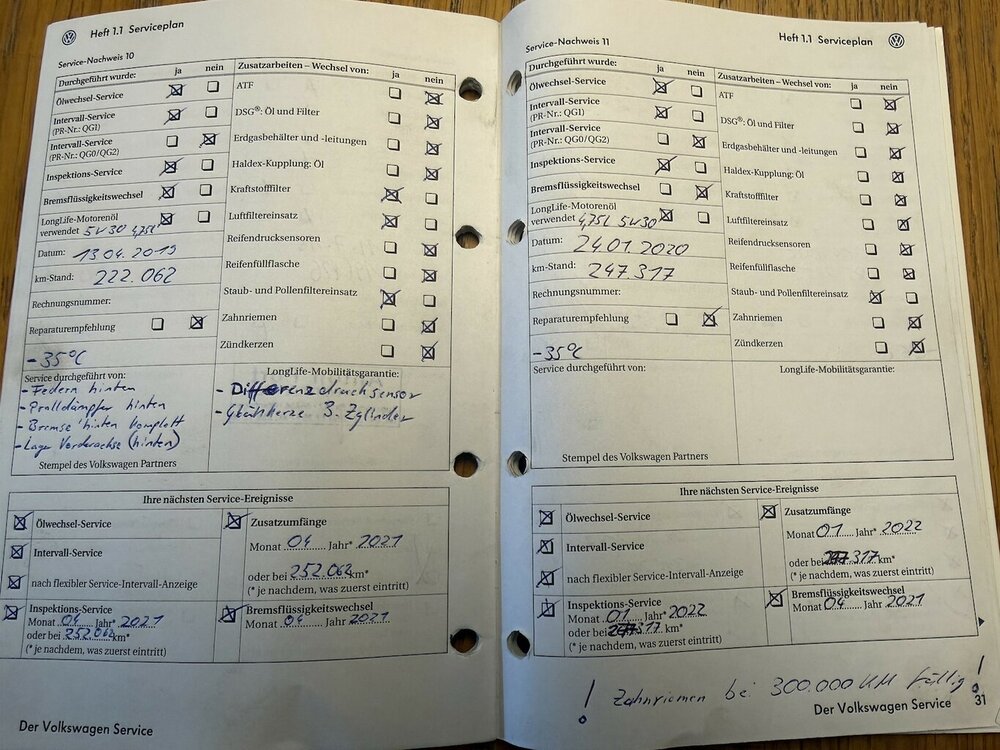 Heft 1.1 Serviceplan
Service-Nachweis 10
Durchgeführt wurde: ja nein
Ölwechsel-Service
Intervall-Service
(PR-Nr.: QG1)
Intervall-Service
(PR-Nr.: QG0/QG2)
Inspektions-Service
Bremsflüssigkeitswechsel
LongLife-Motorenöl
verwendet 5W30 4,75l
Datum: 13.04.2019
km-Stand: 222.062
Rechnungsnummer:
Reparaturempfehlung
-35°C
Zusatzarbeiten – Wechsel von: ja nein
ATF
DSG®: Öl und Filter
Erdgasbehälter und -leitungen
Haldex-Kupplung: Öl
Kraftstofffilter
Luftfiltereinsatz
Reifendrucksensoren
Reifenfüllflasche
Staub- und Pollenfiltereinsatz
Zahnriemen
Zündkerzen
Service durchgeführt von:
- Federn hinten
- Pralldämpfer hinten
- Bremse hinten komplett
- Lager Vorderachse (hinten)
Stempel des Volkswagen Partners
LongLife-Mobilitätsgarantie:
- Differenzdrucksensor
- Glühkerze 3. Zylinder
Ihre nächsten Service-Ereignisse
Ölwechsel-Service
Intervall-Service
nach flexibler Service-Intervall-Anzeige
Inspektions-Service
Monat 04 Jahr* 2021
oder bei 252.062 km*
(* je nachdem, was zuerst eintritt)
Zusatzumfänge
Monat 04 Jahr* 2021
oder bei 252.062 km*
(* je nachdem, was zuerst eintritt)
Bremsflüssigkeitswechsel
Monat 04 Jahr 2021
Der Volkswagen Service
Heft 1.1 Serviceplan
Service-Nachweis 11
Durchgeführt wurde: ja nein
Ölwechsel-Service
Intervall-Service
(PR-Nr.: QG1)
Intervall-Service
(PR-Nr.: QG0/QG2)
Inspektions-Service
Bremsflüssigkeitswechsel
LongLife-Motorenöl
verwendet 4,75L 5W30
Datum: 24.01.2020
km-Stand: 247.317
Rechnungsnummer:
Reparaturempfehlung
-35°C
Zusatzarbeiten – Wechsel von: ja nein
ATF
DSG®: Öl und Filter
Erdgasbehälter und -leitungen
Haldex-Kupplung: Öl
Kraftstofffilter
Luftfiltereinsatz
Reifendrucksensoren
Reifenfüllflasche
Staub- und Pollenfiltereinsatz
Zahnriemen
Zündkerzen
Service durchgeführt von:
Stempel des Volkswagen Partners
LongLife-Mobilitätsgarantie:
Ihre nächsten Service-Ereignisse
Ölwechsel-Service
Intervall-Service
nach flexibler Service-Intervall-Anzeige
Inspektions-Service
Monat 01 Jahr* 2022
oder bei 317 km*
(* je nachdem, was zuerst eintritt)
Zusatzumfänge
Monat 01 Jahr* 2022
oder bei 317 km*
(* je nachdem, was zuerst eintritt)
Bremsflüssigkeitswechsel
Monat 04 Jahr 2021
! Zahnriemen bei 300.000 KM fällig !
Der Volkswagen Service 31